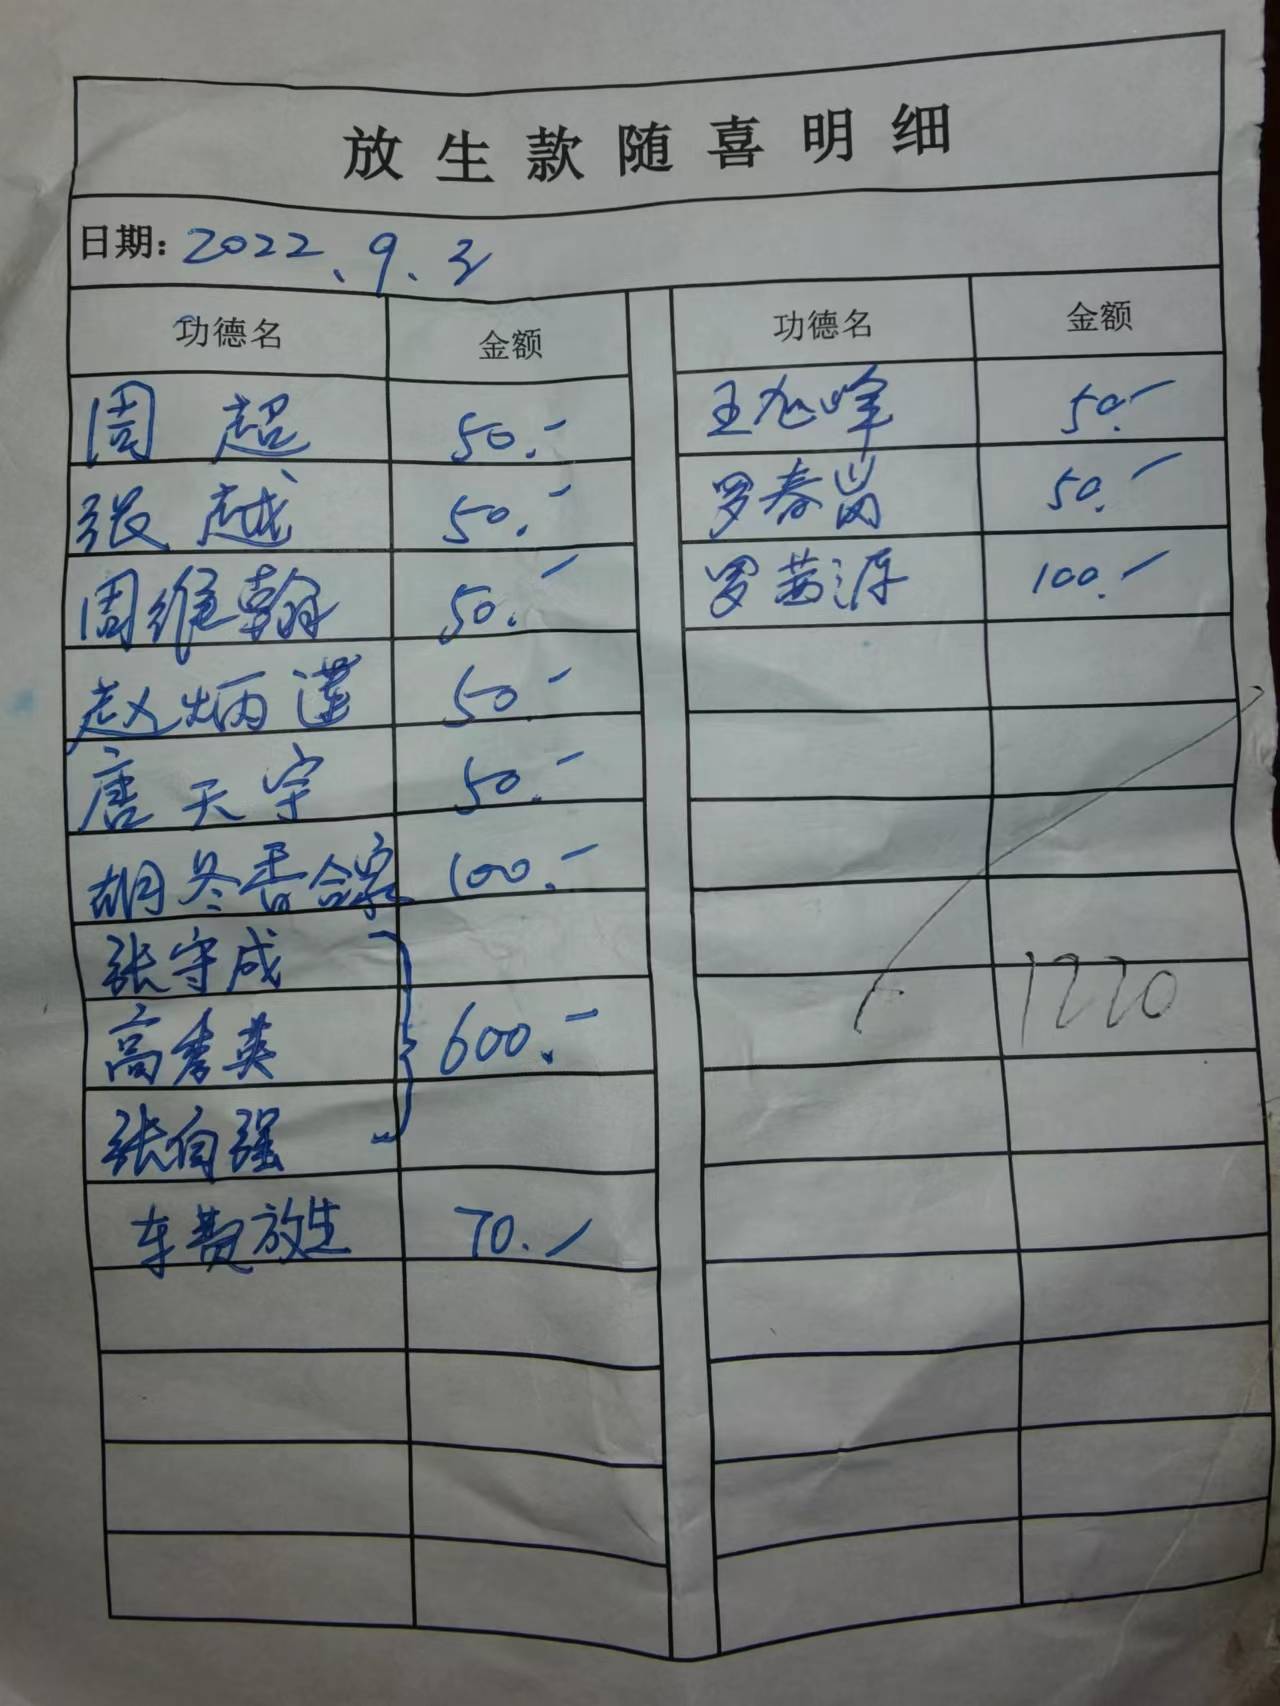 放生款随喜明细
日期: 2022、9、3
功德名 金额 功德名 金额
周超 50.- 王旭峰 50.-
张越 50.- 罗春岗 50.-
周维翰 50.- 罗茜源 100.-
赵炳谨 50.-
唐天宇 50.-
胡冬香合家 100.-
张守成
高秀英 600.- 1220
张自强
车费放生 70.-